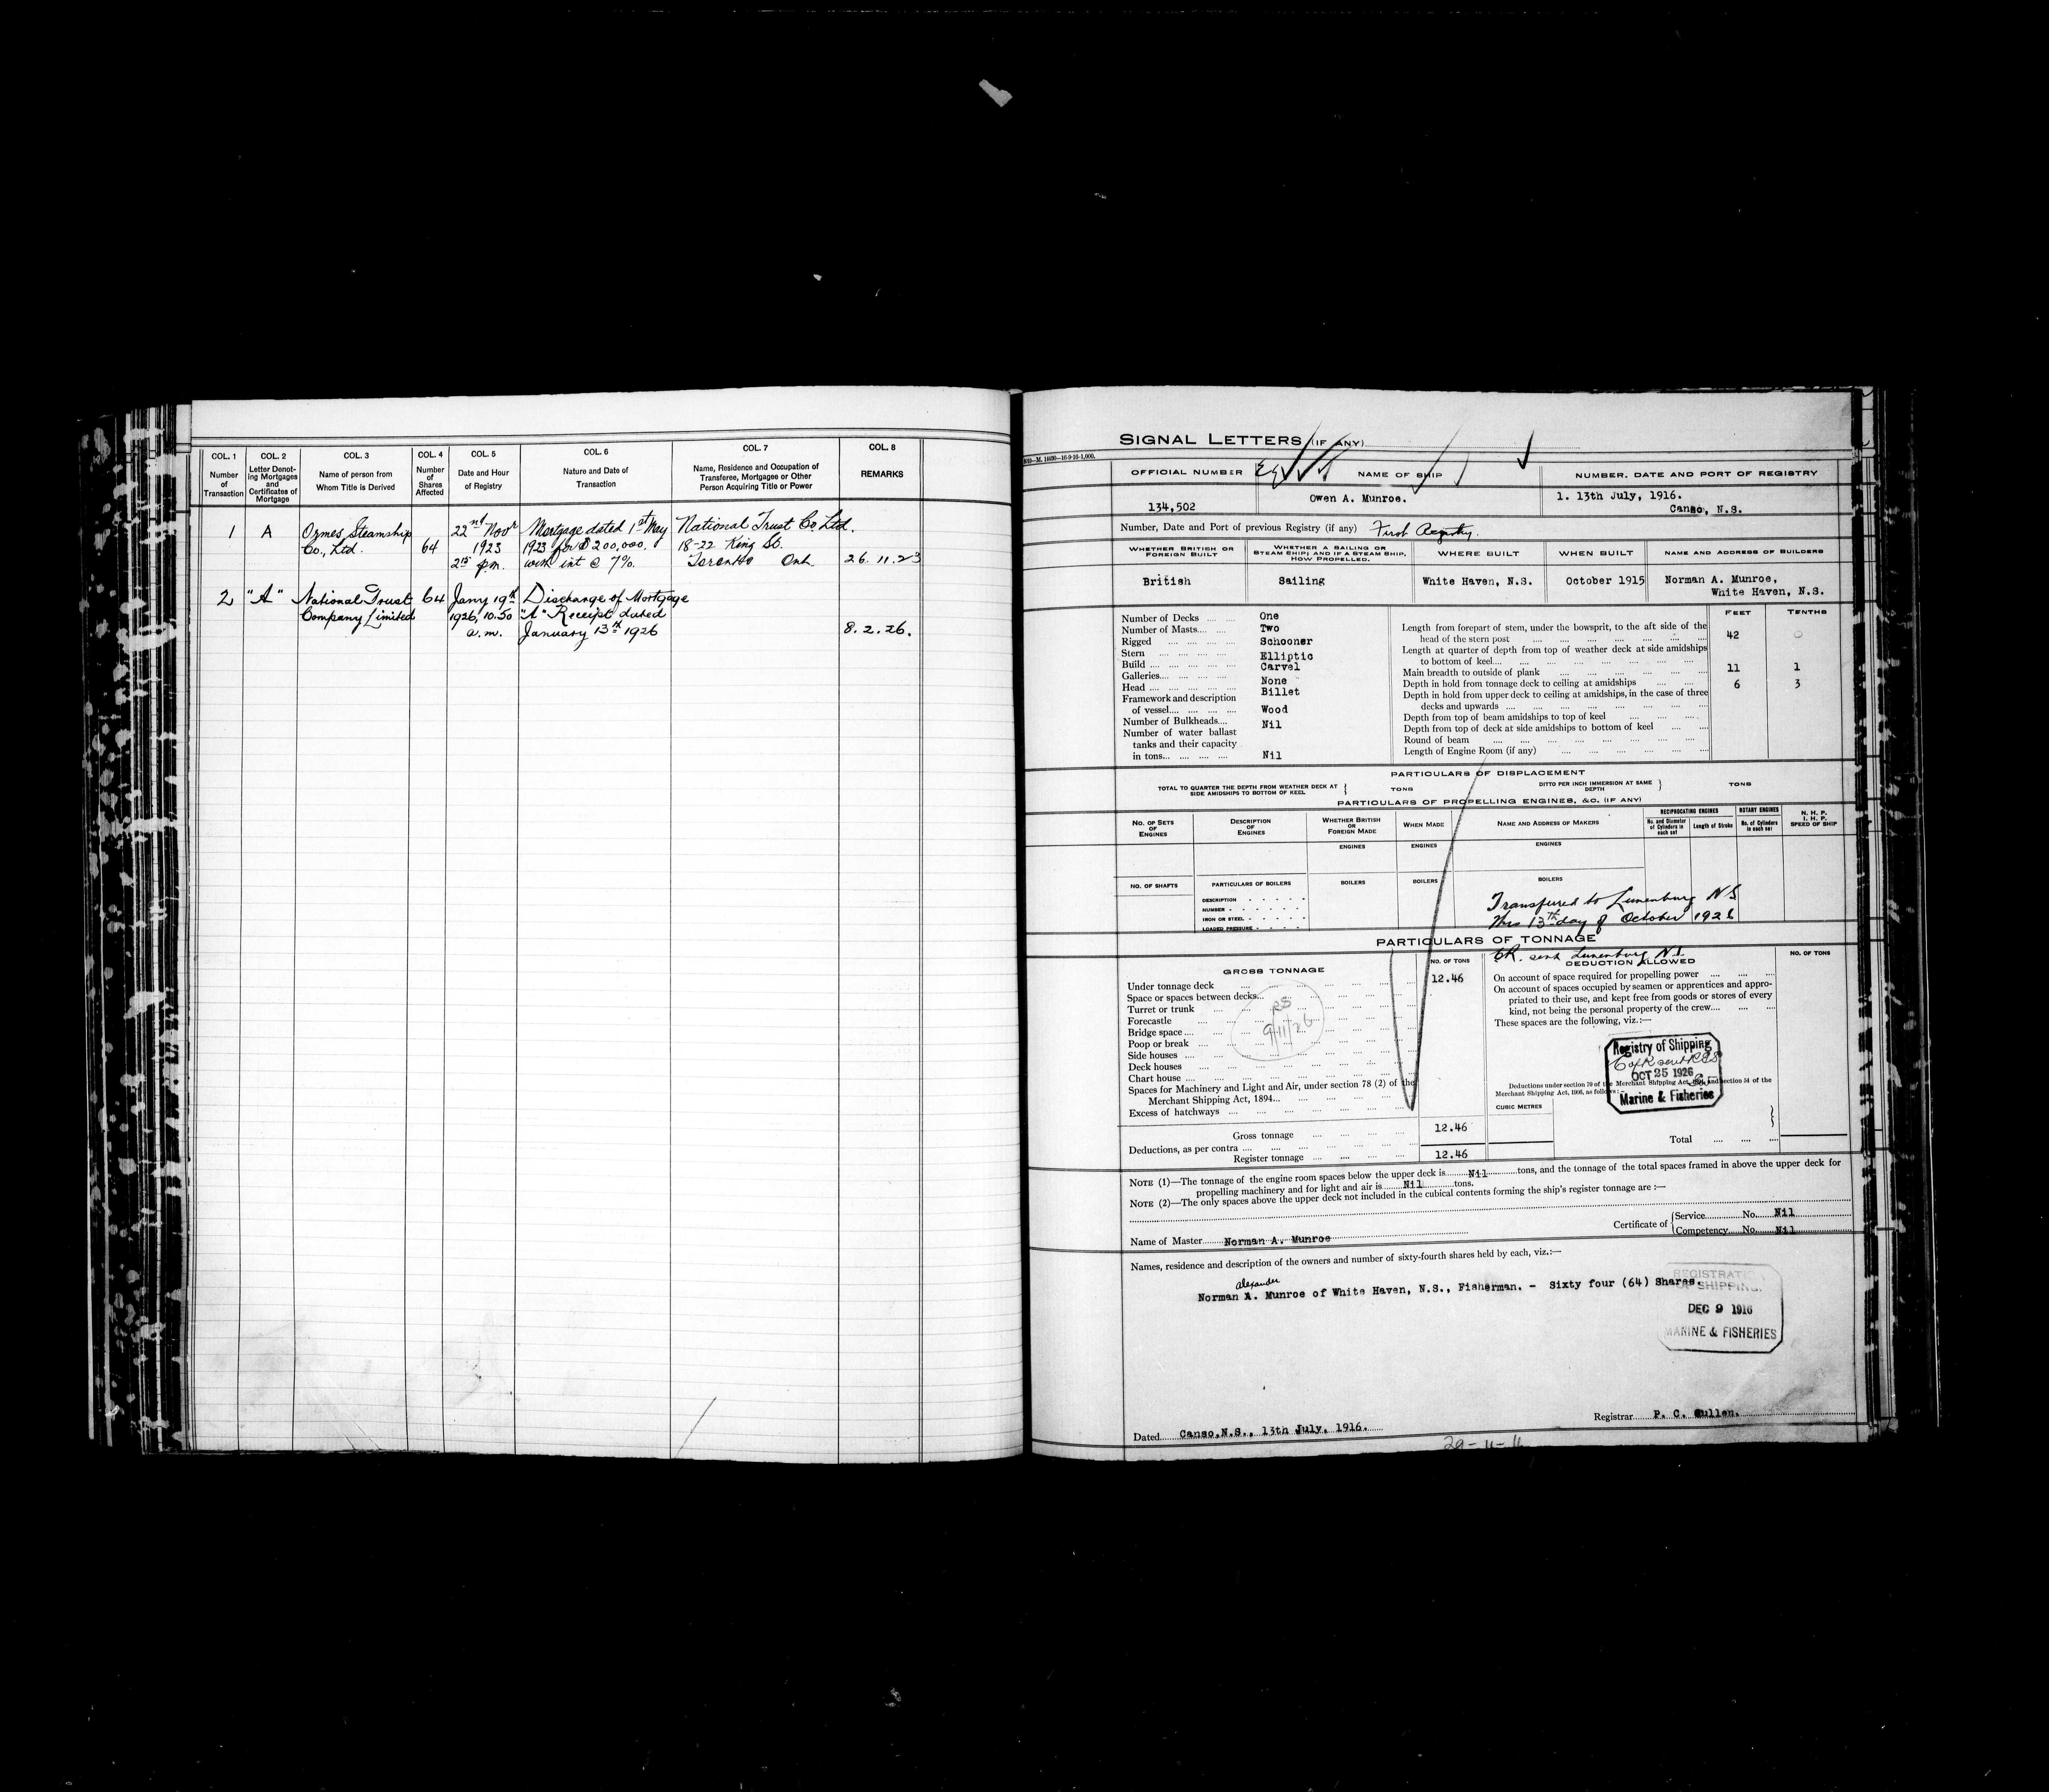 COL. 1 COL. 2 COL. 3 COL. 4 COL. 5 COL. 6 COL. 7 COL. 8
Number of Transaction
Letter Denoting Mortgages and Certificates of Mortgage
Name of person from Whom Title is Derived
Number of Shares Affected
Date and Hour of Registry
Nature and Date of Transaction
Name, Residence and Occupation of Transferee, Mortgagee or Other Person Acquiring Title or Power
REMARKS
1 A Ormes Steamship 22nd Novr Mortgage dated 1st May National Trust Co. Ltd.
Co., Ltd. 64 1923 1923 for $200,000. 18-22 King St.
2 15 p.m. with int @ 7%. Toronto Ont. 26.11.23
2 "A" National Trust 64 Jany 19th Discharge of Mortgage
Company Limited 1926, 10.50 "A" Receipt dated
a.m. January 13th 1926 8.2.26.
SIGNAL LETTERS (IF ANY)
OFFICIAL NUMBER NAME OF SHIP NUMBER, DATE AND PORT OF REGISTRY
134,502 Owen A. Munroe. 1. 13th July, 1916.
Canso, N.S.
Number, Date and Port of previous Registry (if any) First Registry.
WHETHER BRITISH OR FOREIGN BUILT
WHETHER A SAILING OR STEAM SHIP; AND IF A STEAM SHIP, HOW PROPELLED.
WHERE BUILT WHEN BUILT NAME AND ADDRESS OF BUILDERS
British Sailing White Haven, N.S. October 1915 Norman A. Munroe,
White Haven, N.S.
FEET TENTHS
Number of Decks One
Number of Masts Two
Rigged Schooner
Stern Elliptic
Build Carvel
Galleries None
Head Billet
Framework and description
of vessel Wood
Number of Bulkheads Nil
Number of water ballast
tanks and their capacity
in tons Nil
Length from forepart of stem, under the bowsprit, to the aft side of the
head of the stern post 42 0
Length at quarter of depth from top of weather deck at side amidships
to bottom of keel
Main breadth to outside of plank 11 1
Depth in hold from tonnage deck to ceiling at amidships 6 3
Depth in hold from upper deck to ceiling at amidships, in the case of three
decks and upwards
Depth from top of beam amidships to top of keel
Depth from top of deck at side amidships to bottom of keel
Round of beam
Length of Engine Room (if any)
PARTICULARS OF DISPLACEMENT
TOTAL TO QUARTER THE DEPTH FROM WEATHER DECK AT SIDE AMIDSHIPS TO BOTTOM OF KEEL } TONS
DITTO PER INCH IMMERSION AT SAME DEPTH } TONS
PARTICULARS OF PROPELLING ENGINES, &C. (IF ANY)
NO. OF SETS OF ENGINES
DESCRIPTION OF ENGINES
WHETHER BRITISH OR FOREIGN MADE
WHEN MADE
NAME AND ADDRESS OF MAKERS
RECIPROCATING ENGINES
No. and Diameter of Cylinders in each set
Length of Stroke
ROTARY ENGINES
No. of Cylinders in each set
N. H. P.
I. H. P.
SPEED OF SHIP
ENGINES ENGINES ENGINES
NO. OF SHAFTS PARTICULARS OF BOILERS BOILERS BOILERS BOILERS
DESCRIPTION
NUMBER
IRON OR STEEL
LOADED PRESSURE
Transferred to Lunenburg N S
this 13th day of October 1926
PARTICULARS OF TONNAGE
CR. sent Lunenburg N.S.
GROSS TONNAGE NO. OF TONS DEDUCTION ALLOWED NO. OF TONS
Under tonnage deck 12.46
Space or spaces between decks
Turret or trunk
Forecastle
Bridge space
Poop or break
Side houses
Deck houses
Chart house
Spaces for Machinery and Light and Air, under section 78 (2) of the
Merchant Shipping Act, 1894
Excess of hatchways
RS
9/11/26
On account of space required for propelling power
On account of spaces occupied by seamen or apprentices and appro-
priated to their use, and kept free from goods or stores of every
kind, not being the personal property of the crew
These spaces are the following, viz.:—
Registry of Shipping
OCT 25 1926
Marine & Fisheries
Deductions under section 79 of the Merchant Shipping Act, and section 54 of the
Merchant Shipping Act, 1906, as follows:—
CUBIC METRES
Gross tonnage 12.46
Deductions, as per contra Total
Register tonnage 12.46
NOTE (1)—The tonnage of the engine room spaces below the upper deck is Nil tons, and the tonnage of the total spaces framed in above the upper deck for
propelling machinery and for light and air is Nil tons.
NOTE (2)—The only spaces above the upper deck not included in the cubical contents forming the ship's register tonnage are :—
Name of Master Norman A. Munroe Certificate of { Service No. Nil
Competency No. Nil
Names, residence and description of the owners and number of sixty-fourth shares held by each, viz.:—
alexander
Norman A. Munroe of White Haven, N.S., Fisherman. - Sixty four (64) Shares.
REGISTRAT
OF SHIPPING.
DEC 9 1916
MARINE & FISHERIES
Dated Canso, N.S., 13th July, 1916. Registrar P. C. Cullen.